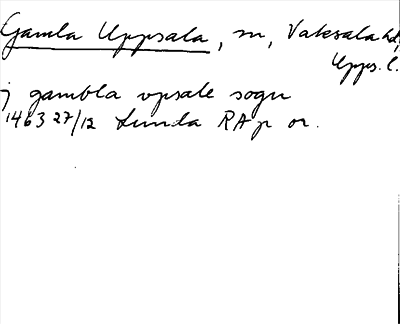 Gamla Uppsala, sn, Vaksala hd,
Upps. l.
j gambla vpsale sogn
1463 27/12 Lunda RAp or.